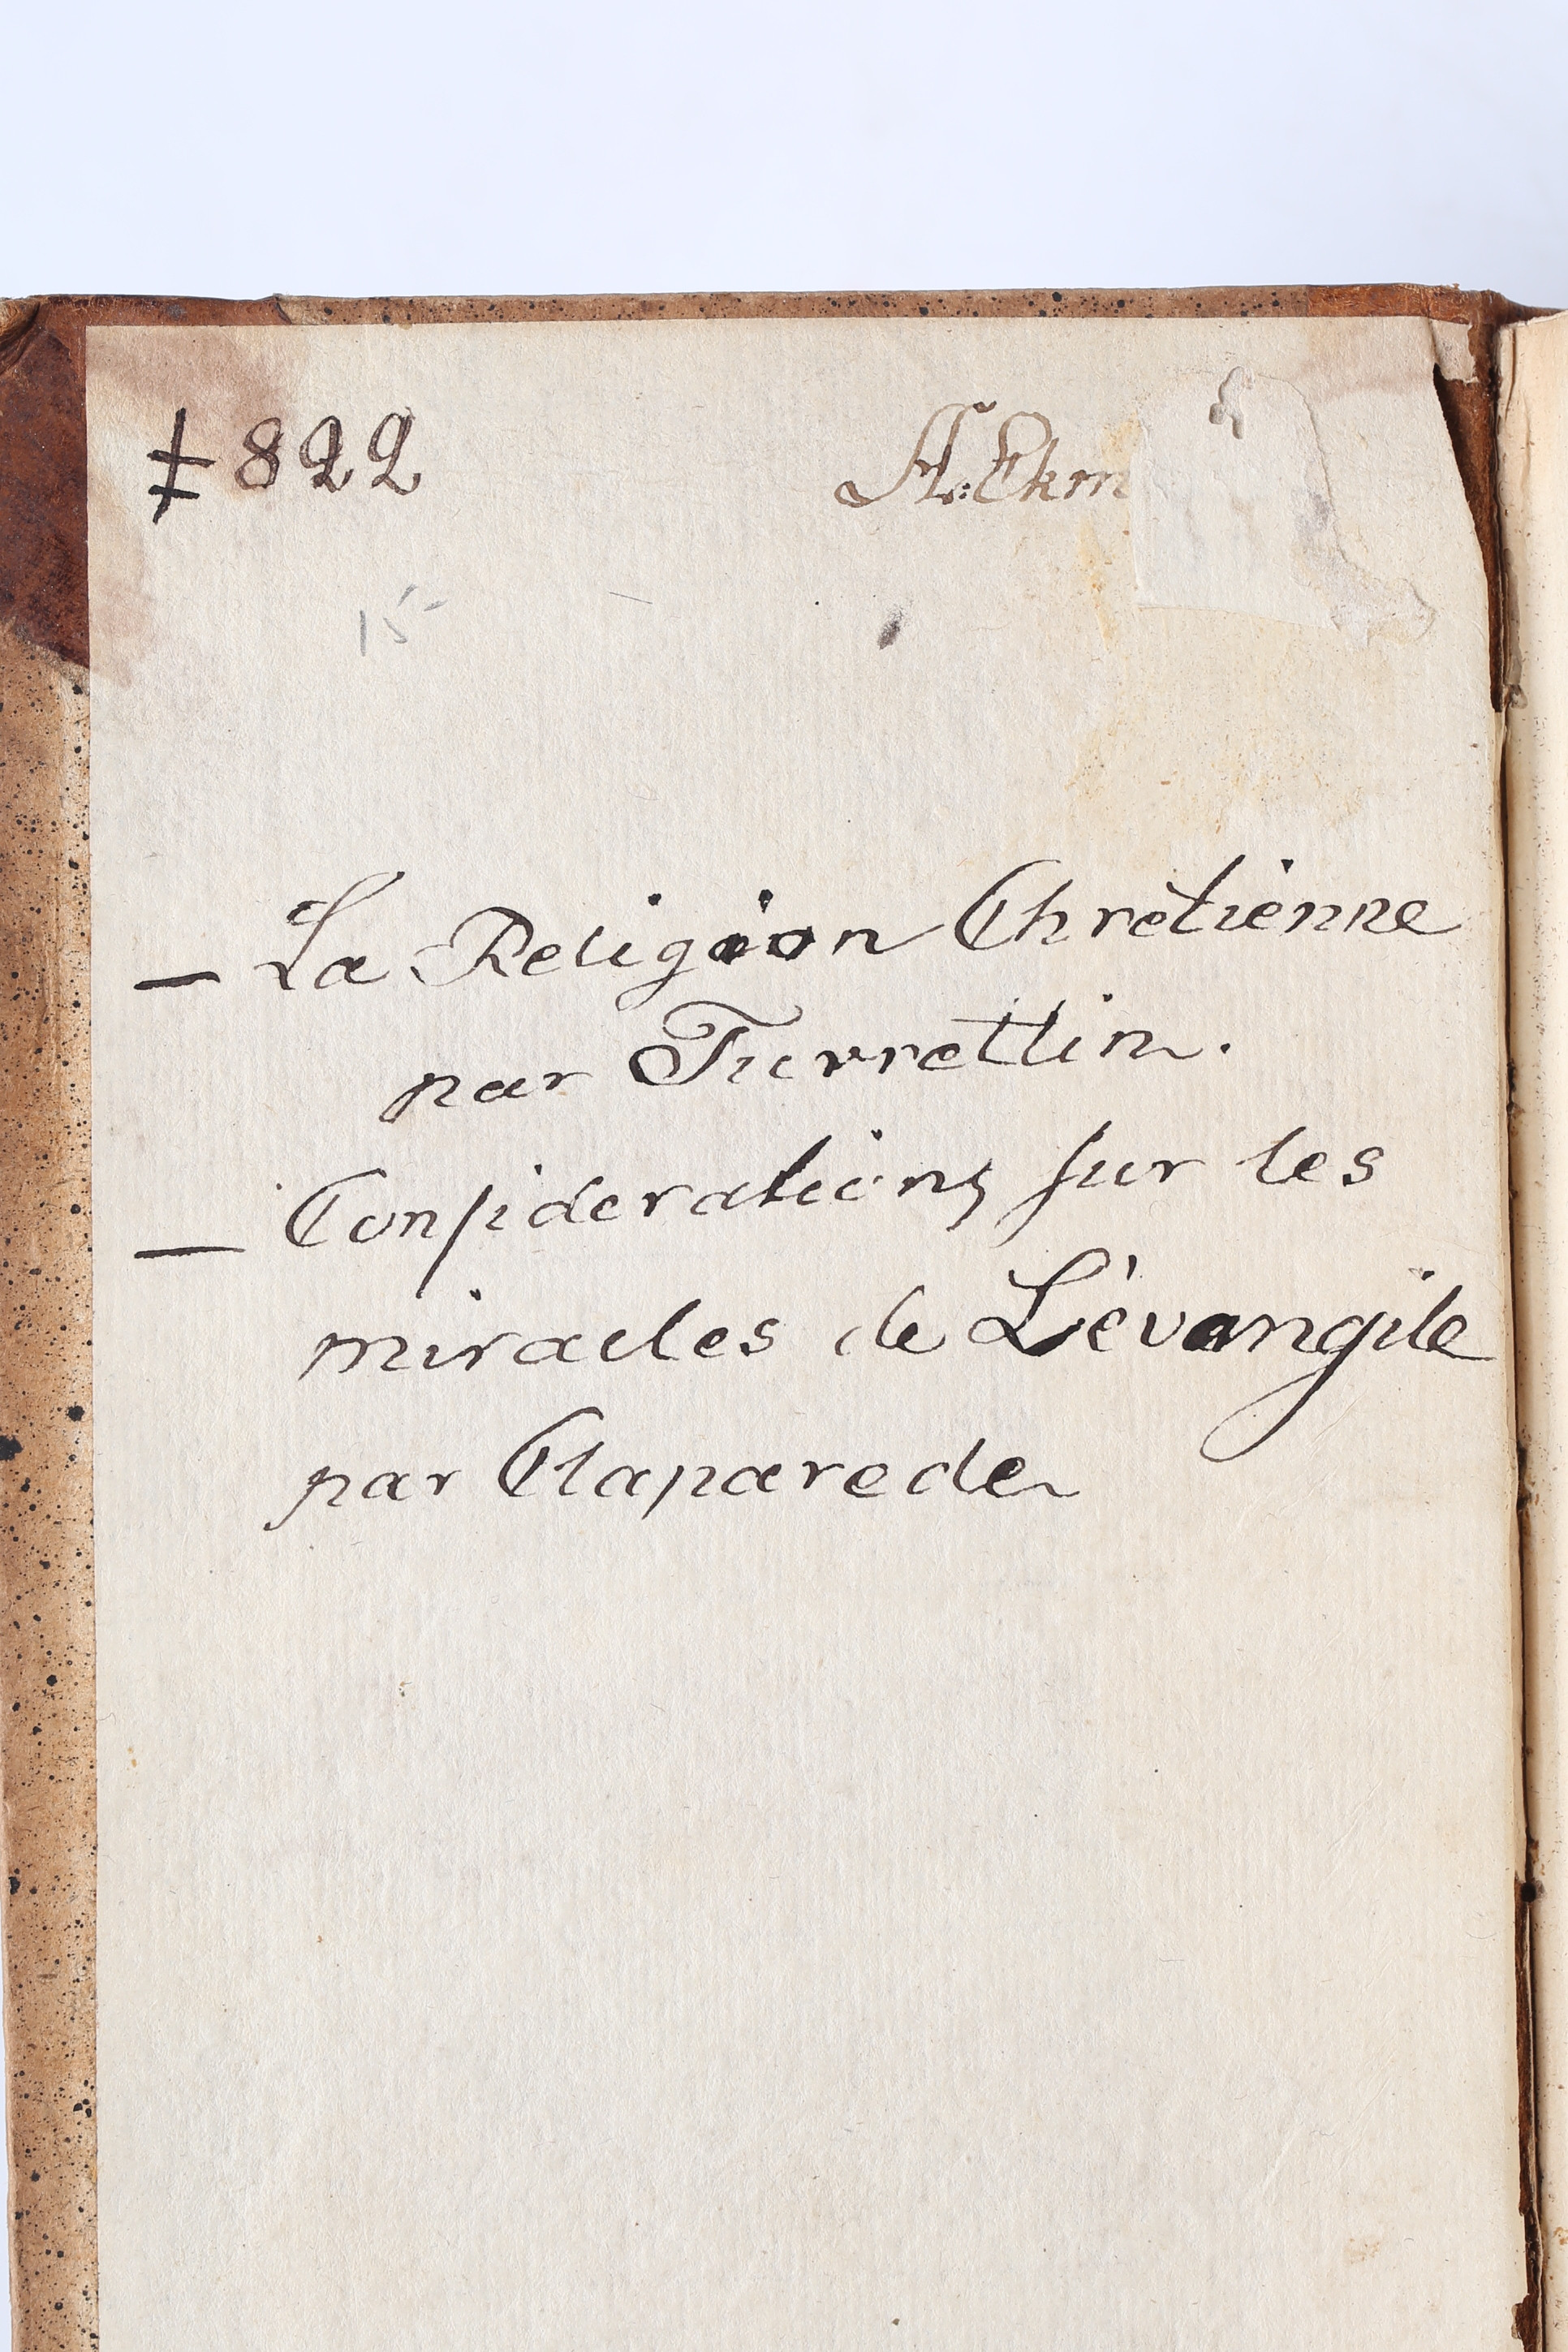 ‡ 822
A. Ekm
15-
— La Religion Chrétienne
par Turrettin.
— Considerations sur les
miracles de L'évangile
par Claparede